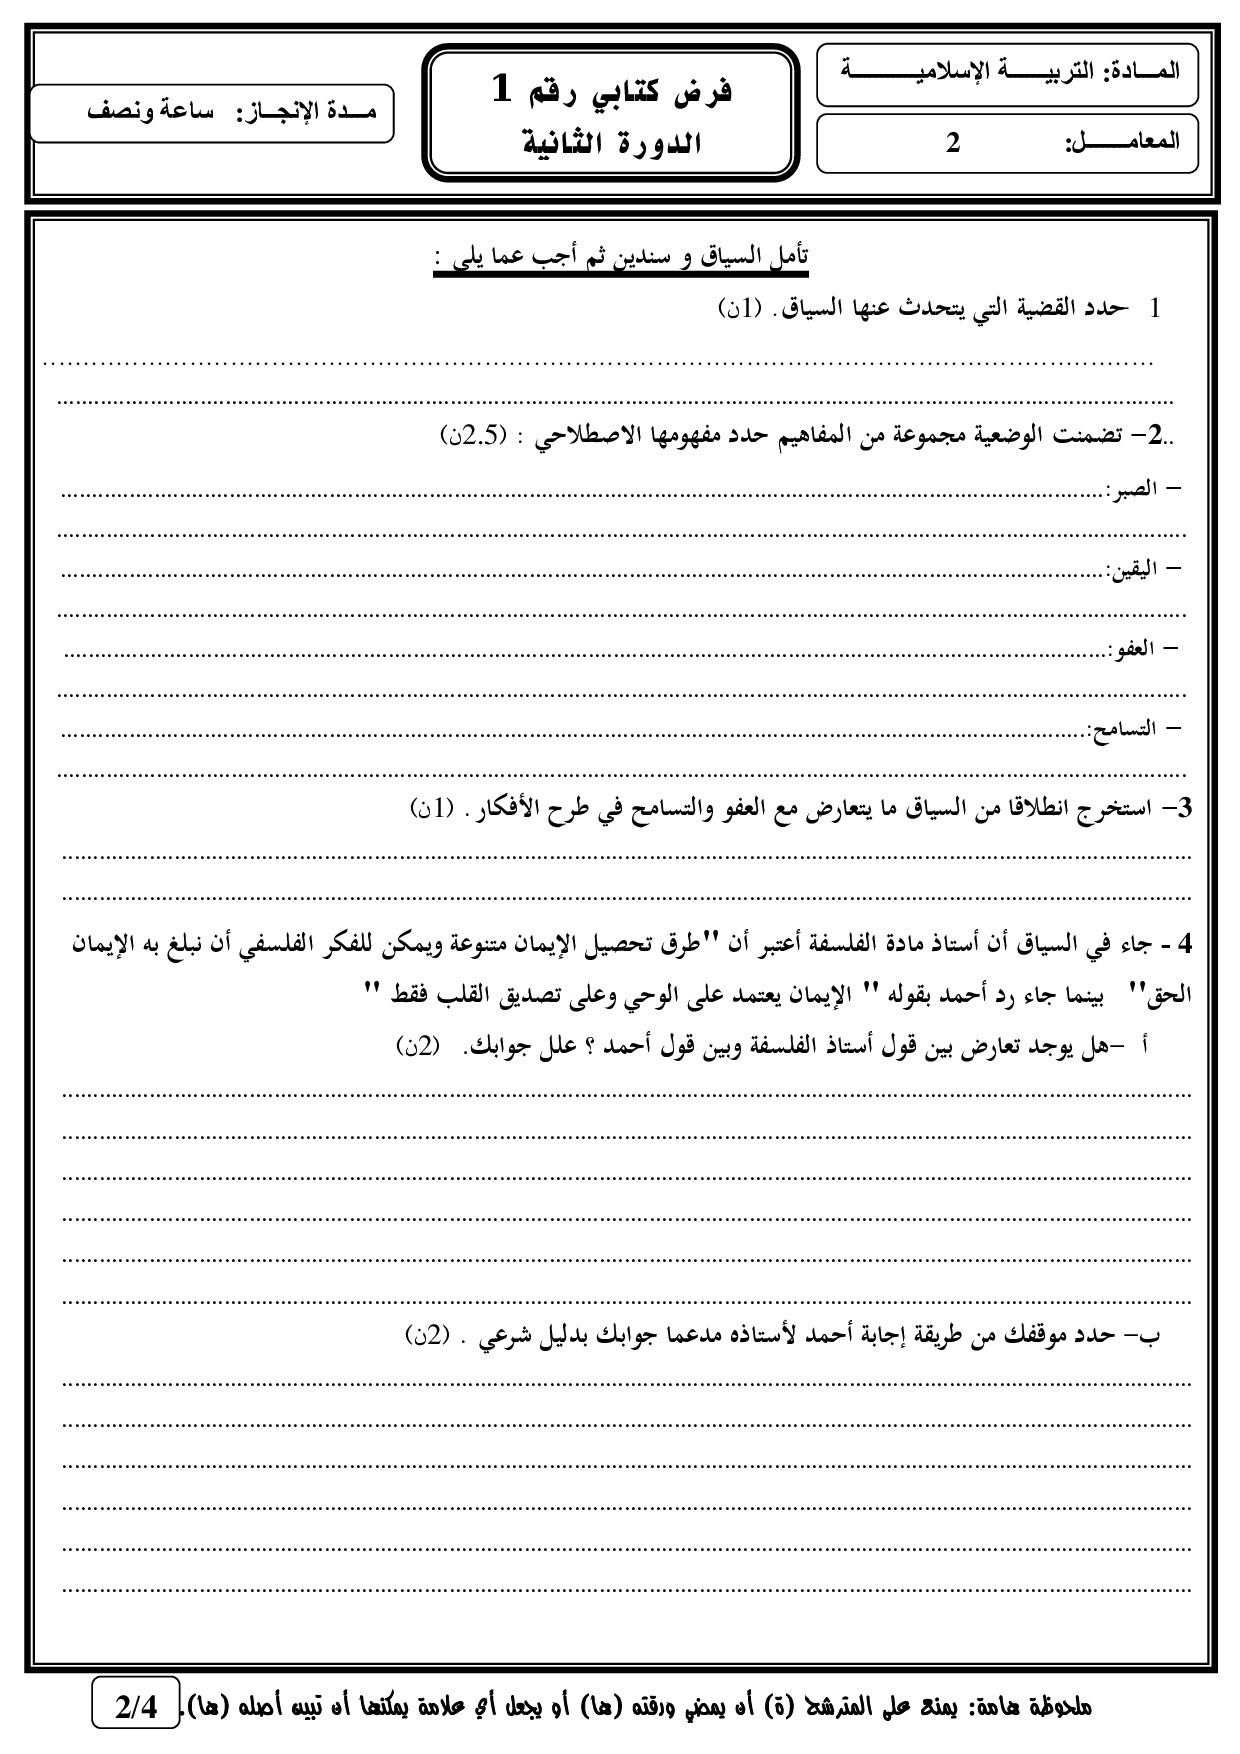 المـــادة: التربيـــــة الإسلاميـــــــــة
المعامـــــــل: 2
فرض كتابي رقم 1
الدورة الثانية
مـــدة الإنجــاز: ساعة ونصف
تأمل السياق و سندين ثم أجب عما يلي :
1 -حدد القضية التي يتحدث عنها السياق. (1ن)
..2- تضمنت الوضعية مجموعة من المفاهيم حدد مفهومها الاصطلاحي : (2.5ن)
- الصبر:
- اليقين:
- العفو:
- التسامح:
3- استخرج انطلاقا من السياق ما يتعارض مع العفو والتسامح في طرح الأفكار. (1ن)
4 - جاء في السياق أن أستاذ مادة الفلسفة أعتبر أن "طرق تحصيل الإيمان متنوعة ويمكن للفكر الفلسفي أن نبلغ به الإيمان
الحق" بينما جاء رد أحمد بقوله " الإيمان يعتمد على الوحي وعلى تصديق القلب فقط "
أ -هل يوجد تعارض بين قول أستاذ الفلسفة وبين قول أحمد ؟ علل جوابك. (2ن)
ب- حدد موقفك من طريقة إجابة أحمد لأستاذه مدعما جوابك بدليل شرعي . (2ن)
ملحوظة هامة: يمنع على المترشح (ة) أن يمضي ورقته (ها) أو يجعل أي علامة يمكنها أن تبين أصله (ها).
2/4